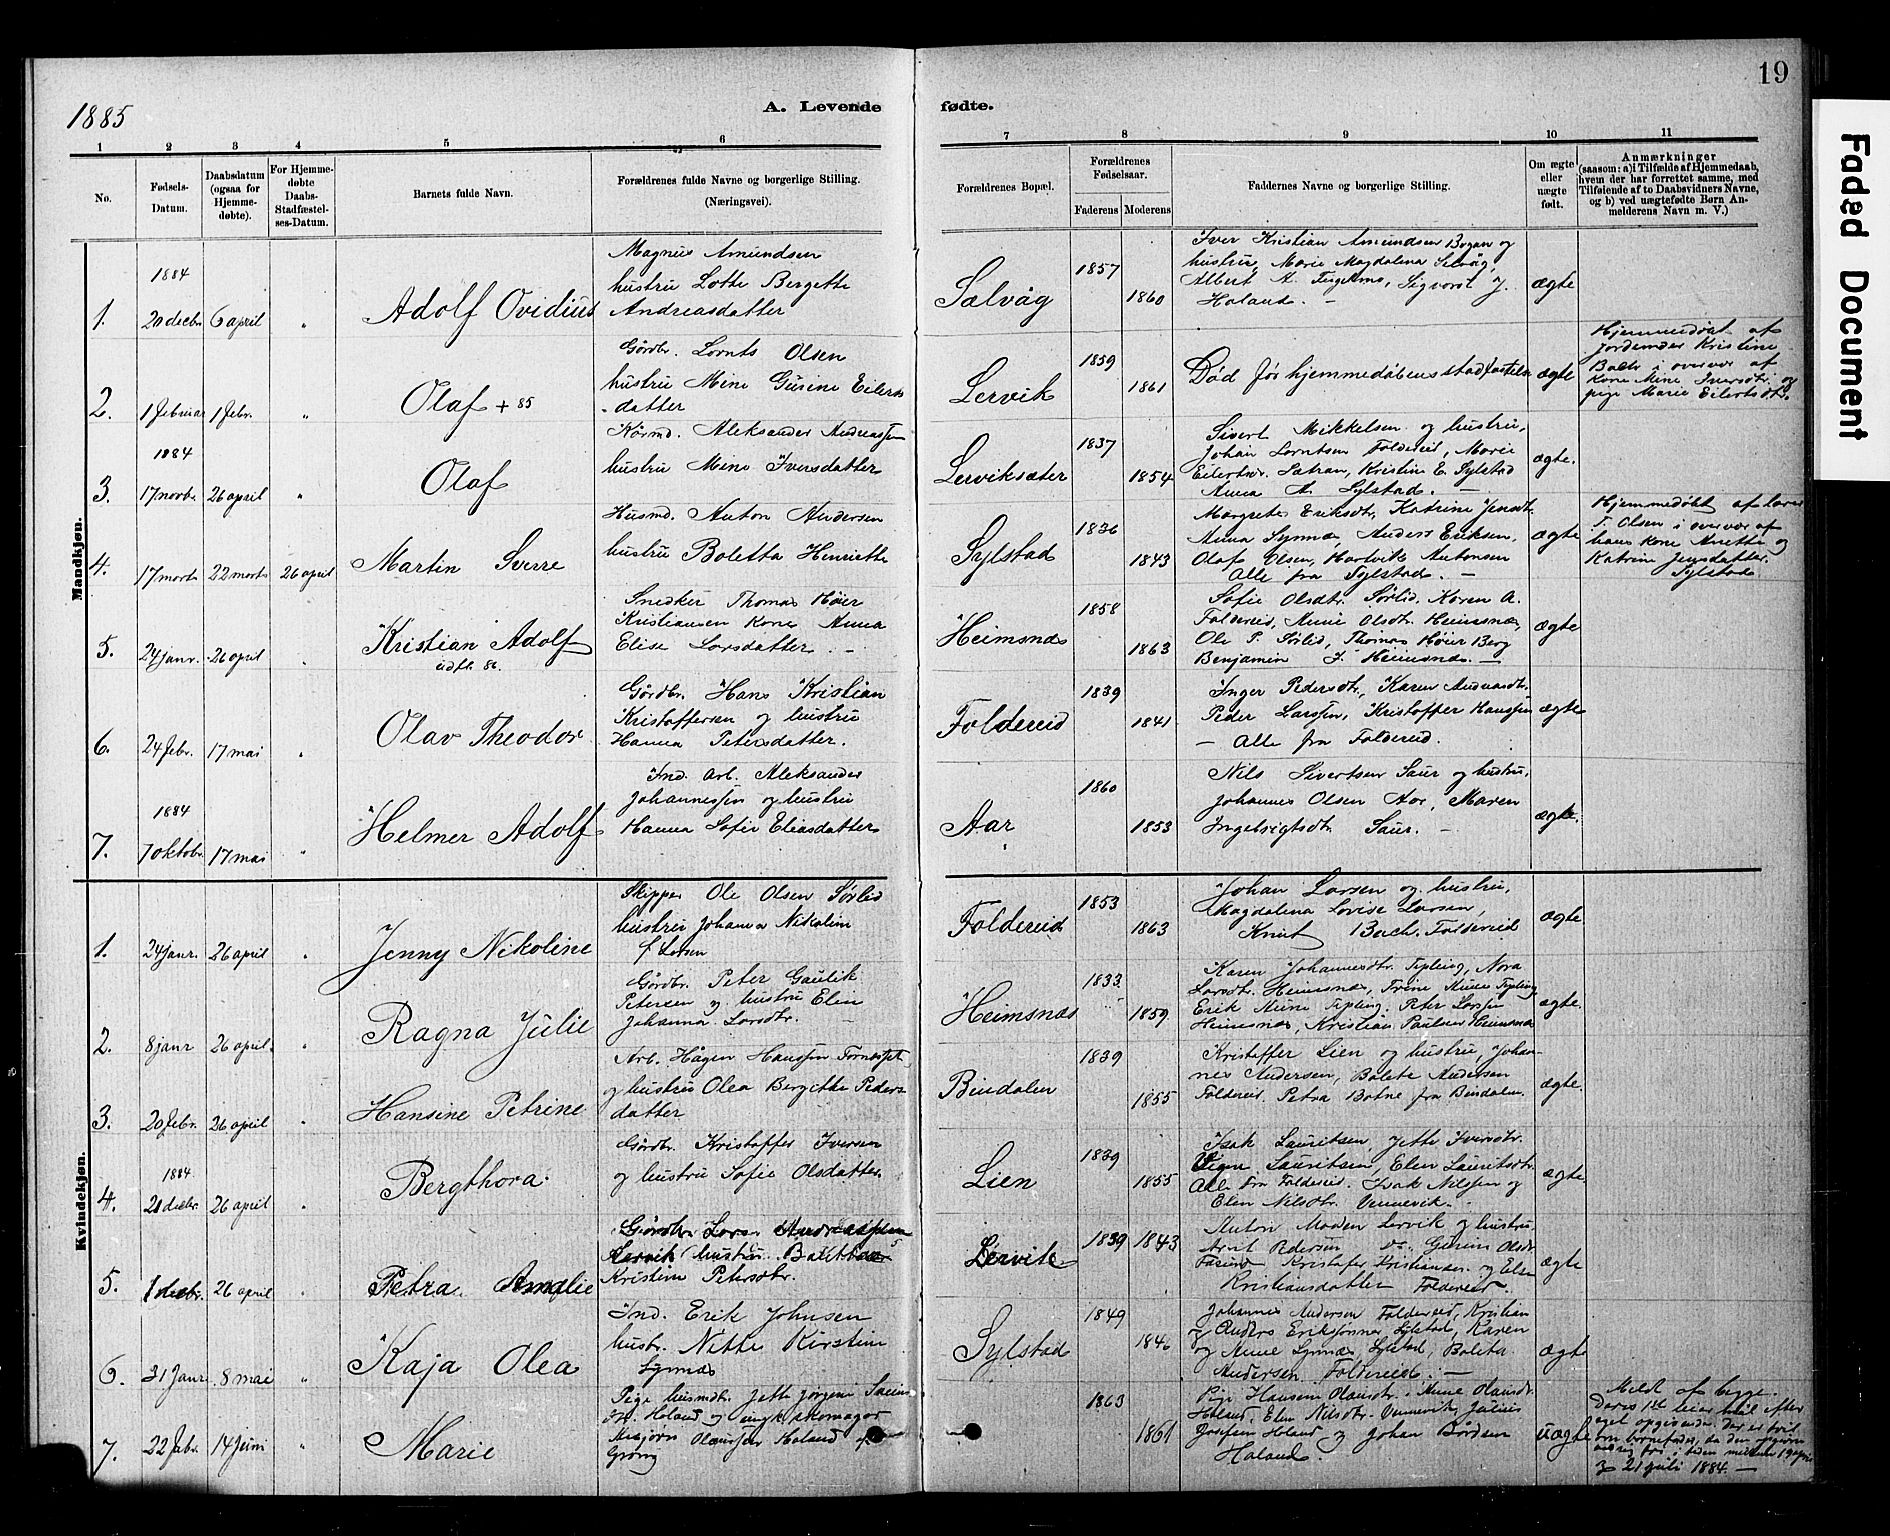 19
1885
A. Levende fødte.
Faded Document
1 2 3 4 5 6 7 8 9 10 11
No.
Fødsels-Datum.
Daabsdatum (ogsaa for Hjemmedøbte).
For Hjemmedøbte Daabs-Stadfæstelses-Datum.
Barnets fulde Navn.
Forældrenes fulde Navne og borgerlige Stilling. (Næringsvei).
Forældrenes Bopæl.
Forældrenes Fødselsaar.
Faderens Moderens
Faddernes Navne og borgerlige Stilling.
Om ægte eller uægte født.
Anmærkninger
(saasom: a) i Tilfælde af Hjemmedaab,
hvem der har forrettet samme, med
Tilføiende af to Daabsvidners Navne,
og b) ved uægtefødte Børn Anmelderens Navn m. V.)
Mandkjøn.
1. 1884 20 decbr. 6 april " Adolf Ovidius
Magnus Amundsen
hustru Lotte Bergette
Andreasdatter
Sælvåg 1857 1860
Iver Kristian Amundsen Bogan og
hustru, Marie Magdalena Selvåg,
Albert A.
Haland. -
ægte
2. 1 februar 1 febr. " Olaf + 85
Gårdbr. Lornts Olsen
hustru Mine Gurine Eilerts
datter
Lervik 1859 1861
Død før hjemmedåbens stadfæstelse
ægte
Hjemmedøbt af
jordemoder Kristine
i overvær af
kone Mine Iversdtr. og
pige Marie Eilertsdtr.
3. 1884 17 novbr. 26 april " Olaf
Aleksander Andreassen
hustru Mine Iversdatter
Lerviksæter 1837 1854
Sivert Mikkelsen og hustru,
Johan Lorntsen Foldereid, Marie
Eilertsdtr. Sætran, Kristine E. Sylstad
Anna A. Sylstad. -
ægte.
4. 17 marts 22 marts 26 april Martin Sverre
Husmd. Anton Andersen
hustru Boletta Henriette
Sylstad 1836 1843
Margrete Eriksdtr, Katrine Jensdtr.
Anna Synnæs, Anders Eriksen,
Olaf Olsen, Hartvik Antonsen
Alle fra Sylstad. -
ægte
Hjemmedøbt af lærer
T. Olsen i overvær af
hans kone Anette og
Katrine Jensdatter
Sylstad.
5. 24 janr. 26 april " Kristian Adolf
udfl. 86.
Snedker Thomas Høier
Kristiansen kone Anna
Elise Larsdatter -
Heimsnæs 1858 1863
Sofie Olsdtr. Sørlid, Karen A.
Foldereid, Anne Olsdtr. Heimsnæs,
Ole P. Sørlid, Thomas Høier Berg
Benjamin J. Heimsnæs. -
ægte
6. 24 febr. 17 mai " Olav Theodor
Gårdbr. Hans Kristian
Kristoffersen og hustru
Hanna Petersdatter.
Foldereid 1839 1841
Inger Pedersdtr., Karen
Peder Larssen, Kristoffer Hanssen
- Alle fra Foldereid.
ægte
7. 1884 7 oktobr. 17 mai " Helmer Adolf
Ind. arb. Aleksander
Johannessen og hustru
Hanna Sofie Eliasdatter
Aar 1860 1853
Nils Sivertsen Saur og hustru,
Johannes Olsen Aar, Maren
Ingebrigtsdtr. Saur. -
ægte.
Kvindekjøn.
1. 24 janr. 26 april " Jenny Nikoline
Skipper Ole Olsen Sørlid
hustru Johanna Nikoline
f. Larsen
Foldereid 1853 1863
Johan Larsen og hustru,
Magdalena Lovise Larsen,
Knut Bach. Foldereid
ægte
2. 8 janr 26 april. Ragna Julie
Gårdbr. Peter Gaulik
Petersen og hustru Elen
Johanna Larsdtr. -
Heimsnæs 1833. 1859
Karen Johannesdtr. Tepling, Nora
Larsdtr. Heimsnæs, Trine Anne Tepling
Erik Anne Tepling, Peter Larssen
Heimsnæs, Kristian Paulsen Heimsnæs
ægte.
3. 20 febr. 26 april " Hansine Petrine
Arb. Hågen Hanssen
og hustru Olea Bergitte Peders-
datter
Bindalen 1839 1855
Kristoffer Lien og hustru, Johan-
nes Andersen, Bolete Andersen
Foldereid. Petra Botne fra Bindalen.
ægte.
4. 1884 21 decbr. 26 april " Bergthora.
Gårdbr. Kristoffer Iversen
og hustru Sofie Olsdatter
Lien 1839 1855
Isak Lauritsen, Jette Iversdtr.
Lauritsen, Elen Lauritsdtr.
Alle fra Foldereid. Isak Nilssen og
Elen Nilsdtr. Vennevik. -
ægte.
5. 1 decbr. 26 april " Petra Amalie
Gårdbr. Lars Andreassen
Lervik hustru
Kristine Petersdtr.
Lervik 1839 1843
Anton Moden Lervik og hustru
Arnt Pedersen do., Gurine Olsdtr.
Kristofer Kristiansen og Else
Kristiansdatter Foldereid.
ægte
6. 31 Janr. 8 mai " Kaja Olea
Ind. Erik Johnsen
hustr. Nitte Kirstine
Synnæs
Sylstad 1849 1846
Johannes Andersen Foldereid, Kristian
og Anders Erikssønner Sylstad, Karen
og Anne Synnæs, Sylstad, Bolette
Andersen, Foldereid. -
ægte
7. 22 febr. 14 juni " Marie
Pige husmdtr. Jette Jørgine
Haland og ungk. skomager
Asbjørn Olaussen Haland
Grong
1863 1861
Pige Hansine Olausdtr., Anne Olausdtr.
Haland, Elen Nilsdtr. Vennevik, Julius
Josefsen Haland og Johan Bårdsen
Haland.
uægte
Meldt af begge.
Deres 1ste leiermål efter
eget opgivende. Der er tvil
om barnefader, da den opgivne
i tiden mellem 19 april
og 21 juli 1884. -